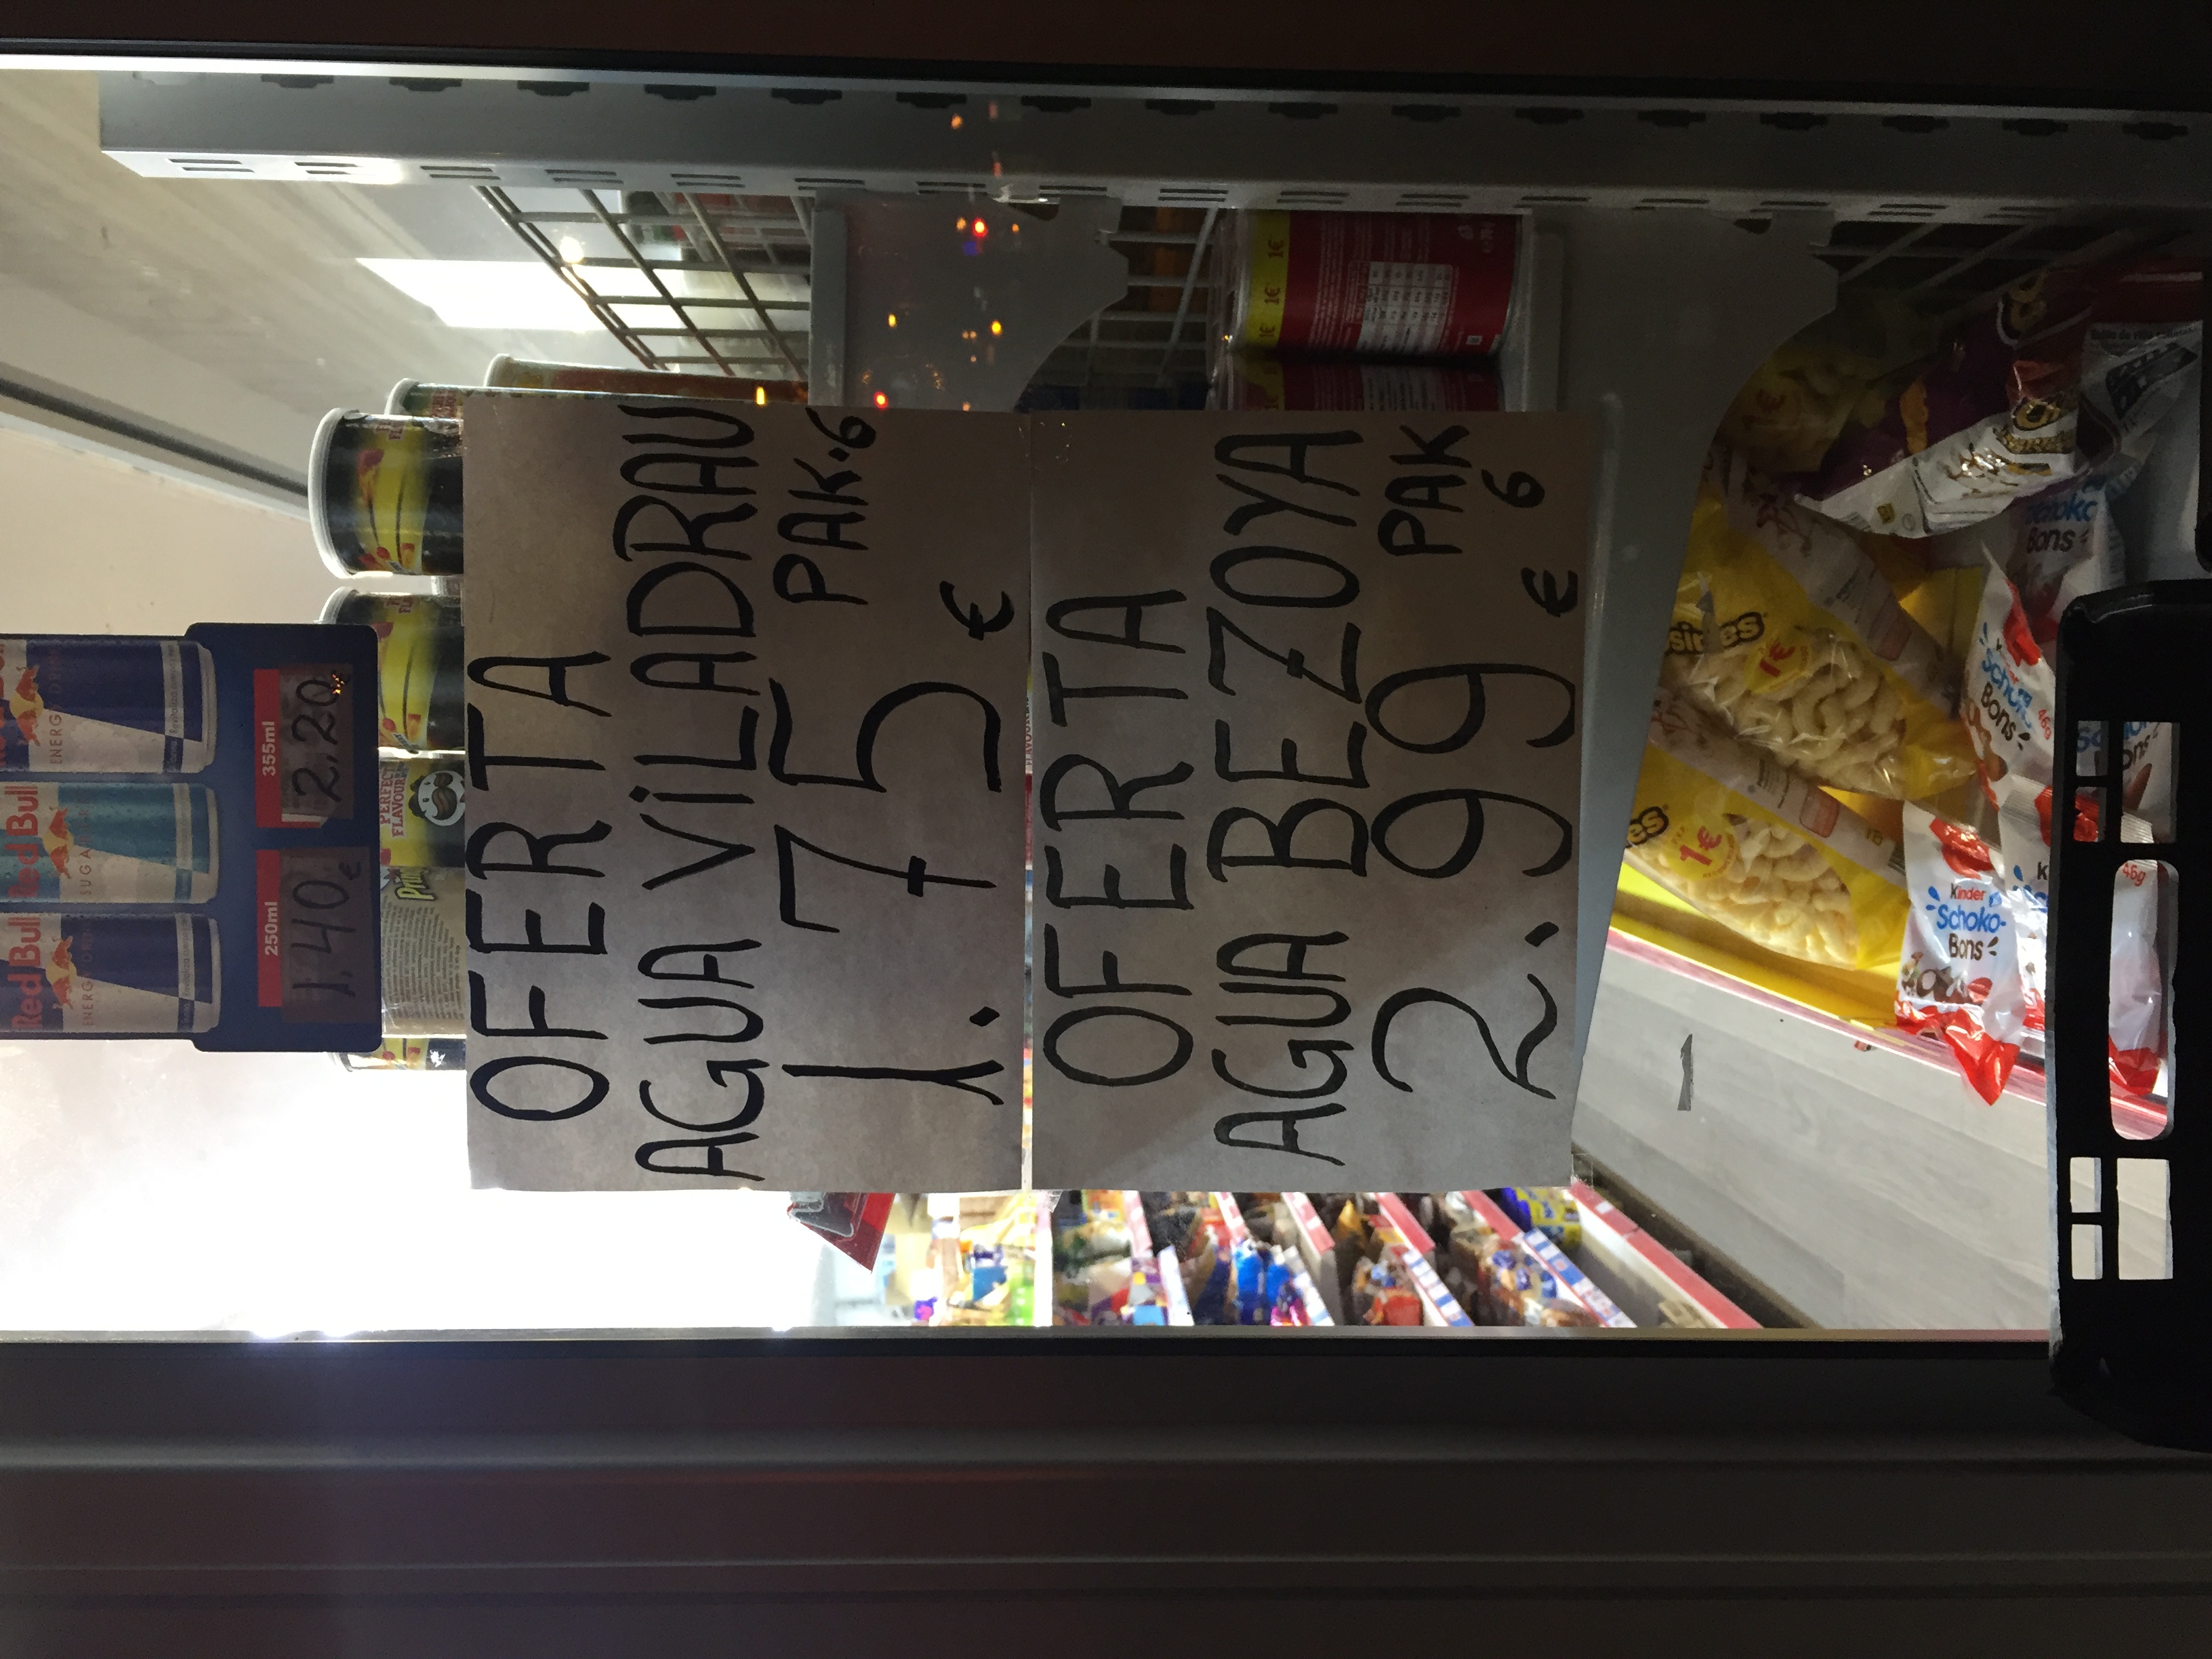 Red Bull
Red Bull
ENERGY DRINK
SUGARFREE
ENERGY DRINK
250ml
355ml
1.40€
2.20
PERFECT
FLAVOUR
OFERTA
AGUA ViLADRAU
1.75 € PAK·6
OFERTA
AGUA BEZOYA
2.99 € PAK
6
1€ 1€ 1€
1€
1€
Kinder
Schoko-
Bons
Kinder
Schoko
Bons
46g
46g
Bons